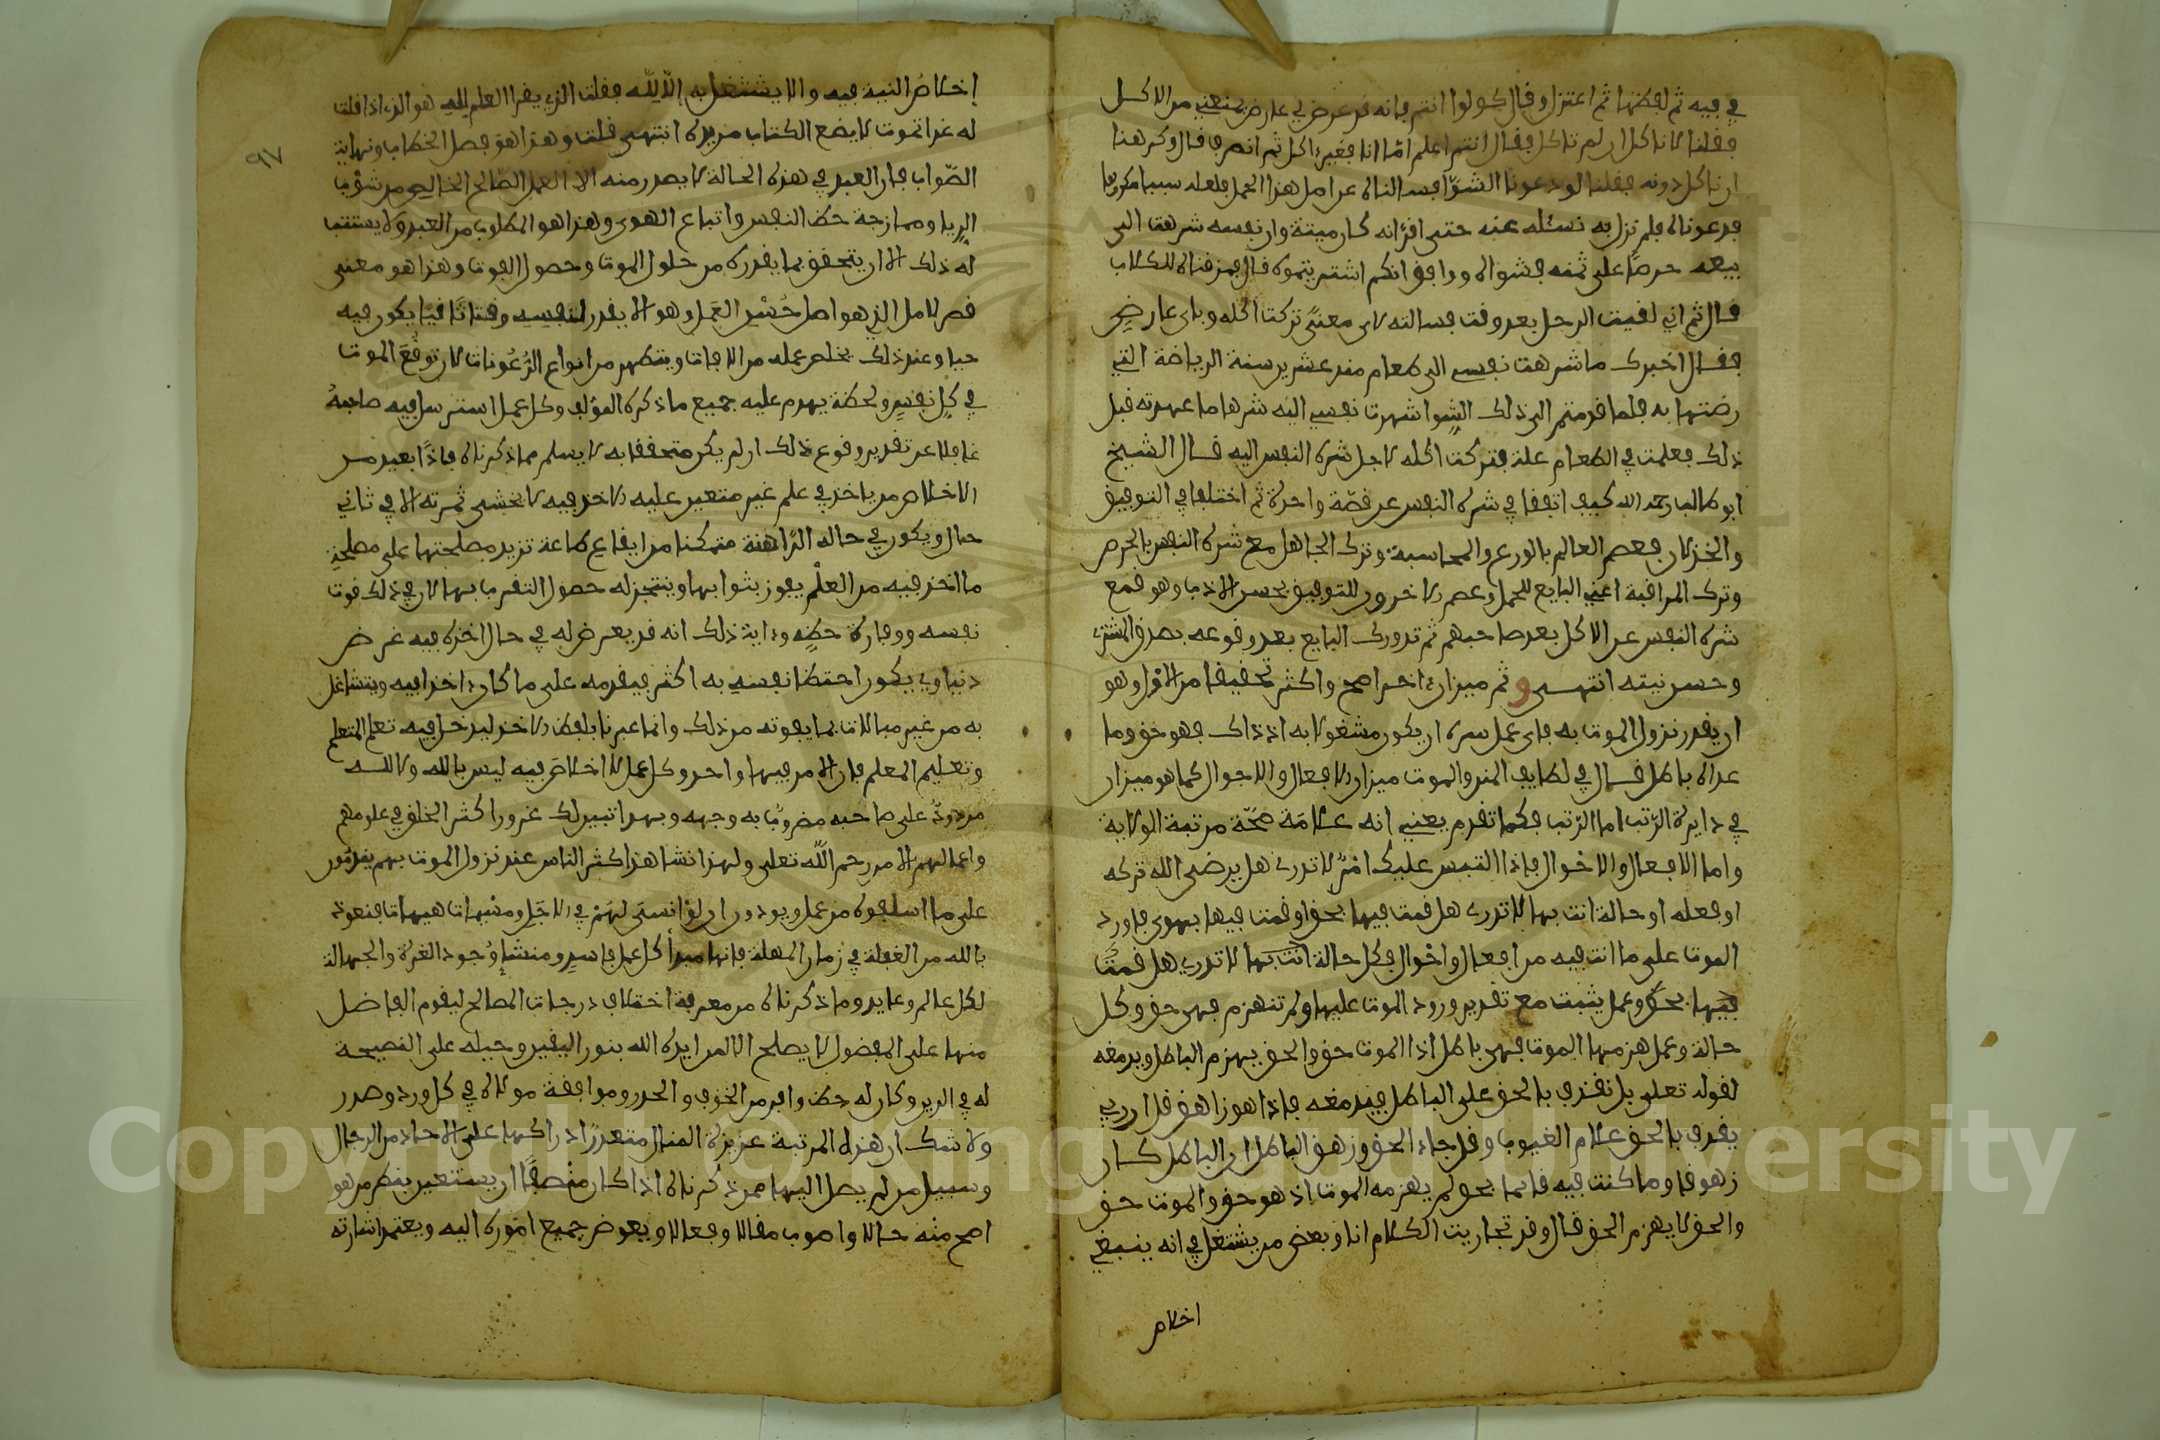 في فيه ثم لفظها ثم اعتزل وقال كلوا انتم فانه قد عرض لي عارض يمنعني من الاكل
فقلنا لا ناكل ان لم تاكل فقال انتم اعلم اما انا فغير اكل ثم انصرف قال وكرهنا
ان ناكل دونه فقلنا لو دعونا الشوّا فسالناه عن اصل هذا الحمل فلعله سببا مكروها
فدعوناه فلم نزل به نسئله عنه حتى اقرّ انه كان ميتة وان نفسه شرهت الى
بيعه حرصًا على ثمنه فشواه ووافق انكم اشتريتموه قال فمزقناه للكلاب
قال ثم اني لقيت الرجل بعد وقت فسالته لاي معنى تركت اكله وباي عارض
فقال اخبرك ما شرهت نفسي الى طعام منذ عشرين سنة الرياضة التي
رضتها به فلما قدمتم الى ذلك الشوا شهرت نفسي اليه شرها ما عهدته قبل
ذلك فعلمت في الطعام علة فتركت اكله لاجل شره النفس اليه قال الشيخ
ابو طالب رحمه الله كيف اتفقا في شره النفس عن قصّة واحدة ثم اختلفا في التوفيق
والخذلان فعصم العالم بالورع والمحاسبة وترك الجاهل مع شره النفس بالحرص
وترك المراقبة اعني البايع للحمل وعصم الاخرون للتوفيق بحسن الادب وهو قمع
شره النفس عن الاكل بعد صاحبهم ثم تدورك البايع بعد وقوعه بصدق المشتري
وحسن نيته انتهى وثم ميزان اخر اصح واكثر تحقيقا من الاول وهو
ان يقدر نزول الموت به فاي عمل سره ان يكون مشغولا به اذ ذاك فهو حق وما
عداه باطل قال في لطايف المنن والموت ميزان الافعال والاحوال كما هو ميزان
في دايرة الرّتب اما الرّتب فكما تقدم يعني انه علامَة صحّة مرتبة الولاية
واما الافعال والاحوال فاذا التبس عليك امرٌ لا تدري هل يرضي الله تركه
او فعله او حالة انت بها لا تدري هل قمت فيها بحق او قمت فيها بهوى فاورد
الموت على ما انت فيه من افعال واحوال فكل حالة انت بها لا تدري هل قمت
فيها بحق وعمل يثبت مع تقدير ورود الموت عليها ولم تنهزم فهي حق وكل
حالة وعمل هزمها الموت فهي باطل اذ الموت حق والحق يهزم الباطل ويدمغه
لقوله تعلى بل نقذف بالحق على الباطل فيدمغه فاذا هو زاهق قل ان ربي
يقذف بالحق علام الغيوب وقل جاء الحق وزهق الباطل ان الباطل كان
زهوقا وما كنت فيه قايما بحق لم يهزمه الموت اذ هو حق والموت حق
والحق لا يهزم الحق قال وقد تجاريت الكلام انا وبعض من يشتغل في انه ينبغي
اخلاص
٩٧
إخلاصُ النية فيه والا يشتغل به إلّا لله فقلت الذي يقرا العلم لله هو الذي اذا قلت
له غدا تموت لا يضع الكتاب من يده انتهى قلت وهذا هو فصل الخطاب ونهاية
الصّواب فان العبد في هذه الحالة لا يصدر منه الا العمل الصّالح الخالص من شوب
الرّيا وممازجة حظ النفس واتباع الهوى وهذا هو المطلوب من العبد ولا يستتب
له ذلك الا ان يتحقق بما يقدره من حلول الموت وحصول الفوت وهذا هو معنى
قصر الامل الذي هو اصل حُسْن العمَل وهو الا يقدر لنفسِه وقتا ثانيًا يكون فيه
حيا وعند ذلك يخلص عمله من الافات ويتطهر من انواع الرُّعُونات لان توقُّعَ الموت
في كل نفسٍ ولحظة يهدم عليه جميع ما ذكره المؤلف وكل عمل استرسل فيه صاحبهُ
غافلا عن تقدير وقوع ذلك ان لم يكن متحققا به لا يسلم مما ذكرناه فاذًا بعيد من
الاخلاص من ياخذ في علم غير متعين عليه الاخذ فيه لا يخشى ثمرته الا في ثاني
حال ويكون في حاله الرّاهنة متمكنا من ايقاع طاعة تزيد مصلحتها على مصلحةِ
ما اخذ فيه من العلْم يفوز بثوابها ويتنجز له حصول التقرب بها لان في ذلك فوت
نفسه ووفارة حظه وءاية ذلك انه قد يعرض له في حال اخذه فيه غرض
دنياوي يكون احتظا نفسه به اكثر فيقدمه على ما كان ءاخذا فيه ويتشاغل
به من غير مبالات بما يفوته من ذلك وانما عبرنا بلفظ الاخذ ليدخل فيه تعلم المتعلم
وتعليم المعلم فان الامر فيها واحد وكل عمل لا اخلاصَ فيه ليس بالله ولا لله
مردودٌ على صاحبه مضروبٌ به وجهه وبهذا تبين لك غرور اكثر الخلق في علومهم
واعمالهم الا من رحم اللّه تعلى ولهذا نشاهد اكثر الناس عند نزول الموت بهم يندمون
على ما اسلفوه من عمل ويودون ان لو انسئ لهَمْ في الاجَل وهيهات هيهات فنعوذ
بالله من الغفلة في زمان المهلة فانها مبدأ كل عمل فاسدٍ ومنشَإ وُجود الغرة والجهالة
لكل عالم وعابد وما ذكرناه من معرفة اختلاف درجات المصالح ليقوم الفاضل
منها على المفضول لا يصلح الا لمن ايده الله بنور اليقين وجبله على النصيحة
له في الدين وكان له حظ وافر من الخوف والحذر وموافقة مولاه في كل ورد وصدر
ولا شك ان هذه المرتبة عزيزة المنال متعذرًا ادراكها على الاحاد من الرجال
وسبيل من لم يصل اليها ممن ذكرناه اذا كان منْصفًا ان يستعين بنظر من هو
اصح منه حالا واصوب مقالا وفعالا ويفوض جميع امُوره اليه ويعتمد اشارته
Copyright © King Saud University